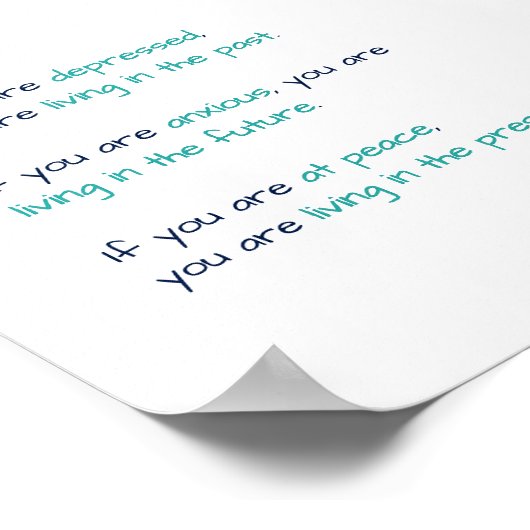 are depressed,
are living in the past.
you are anxious, you are
living in the future.
If you are at peace,
you are living in the